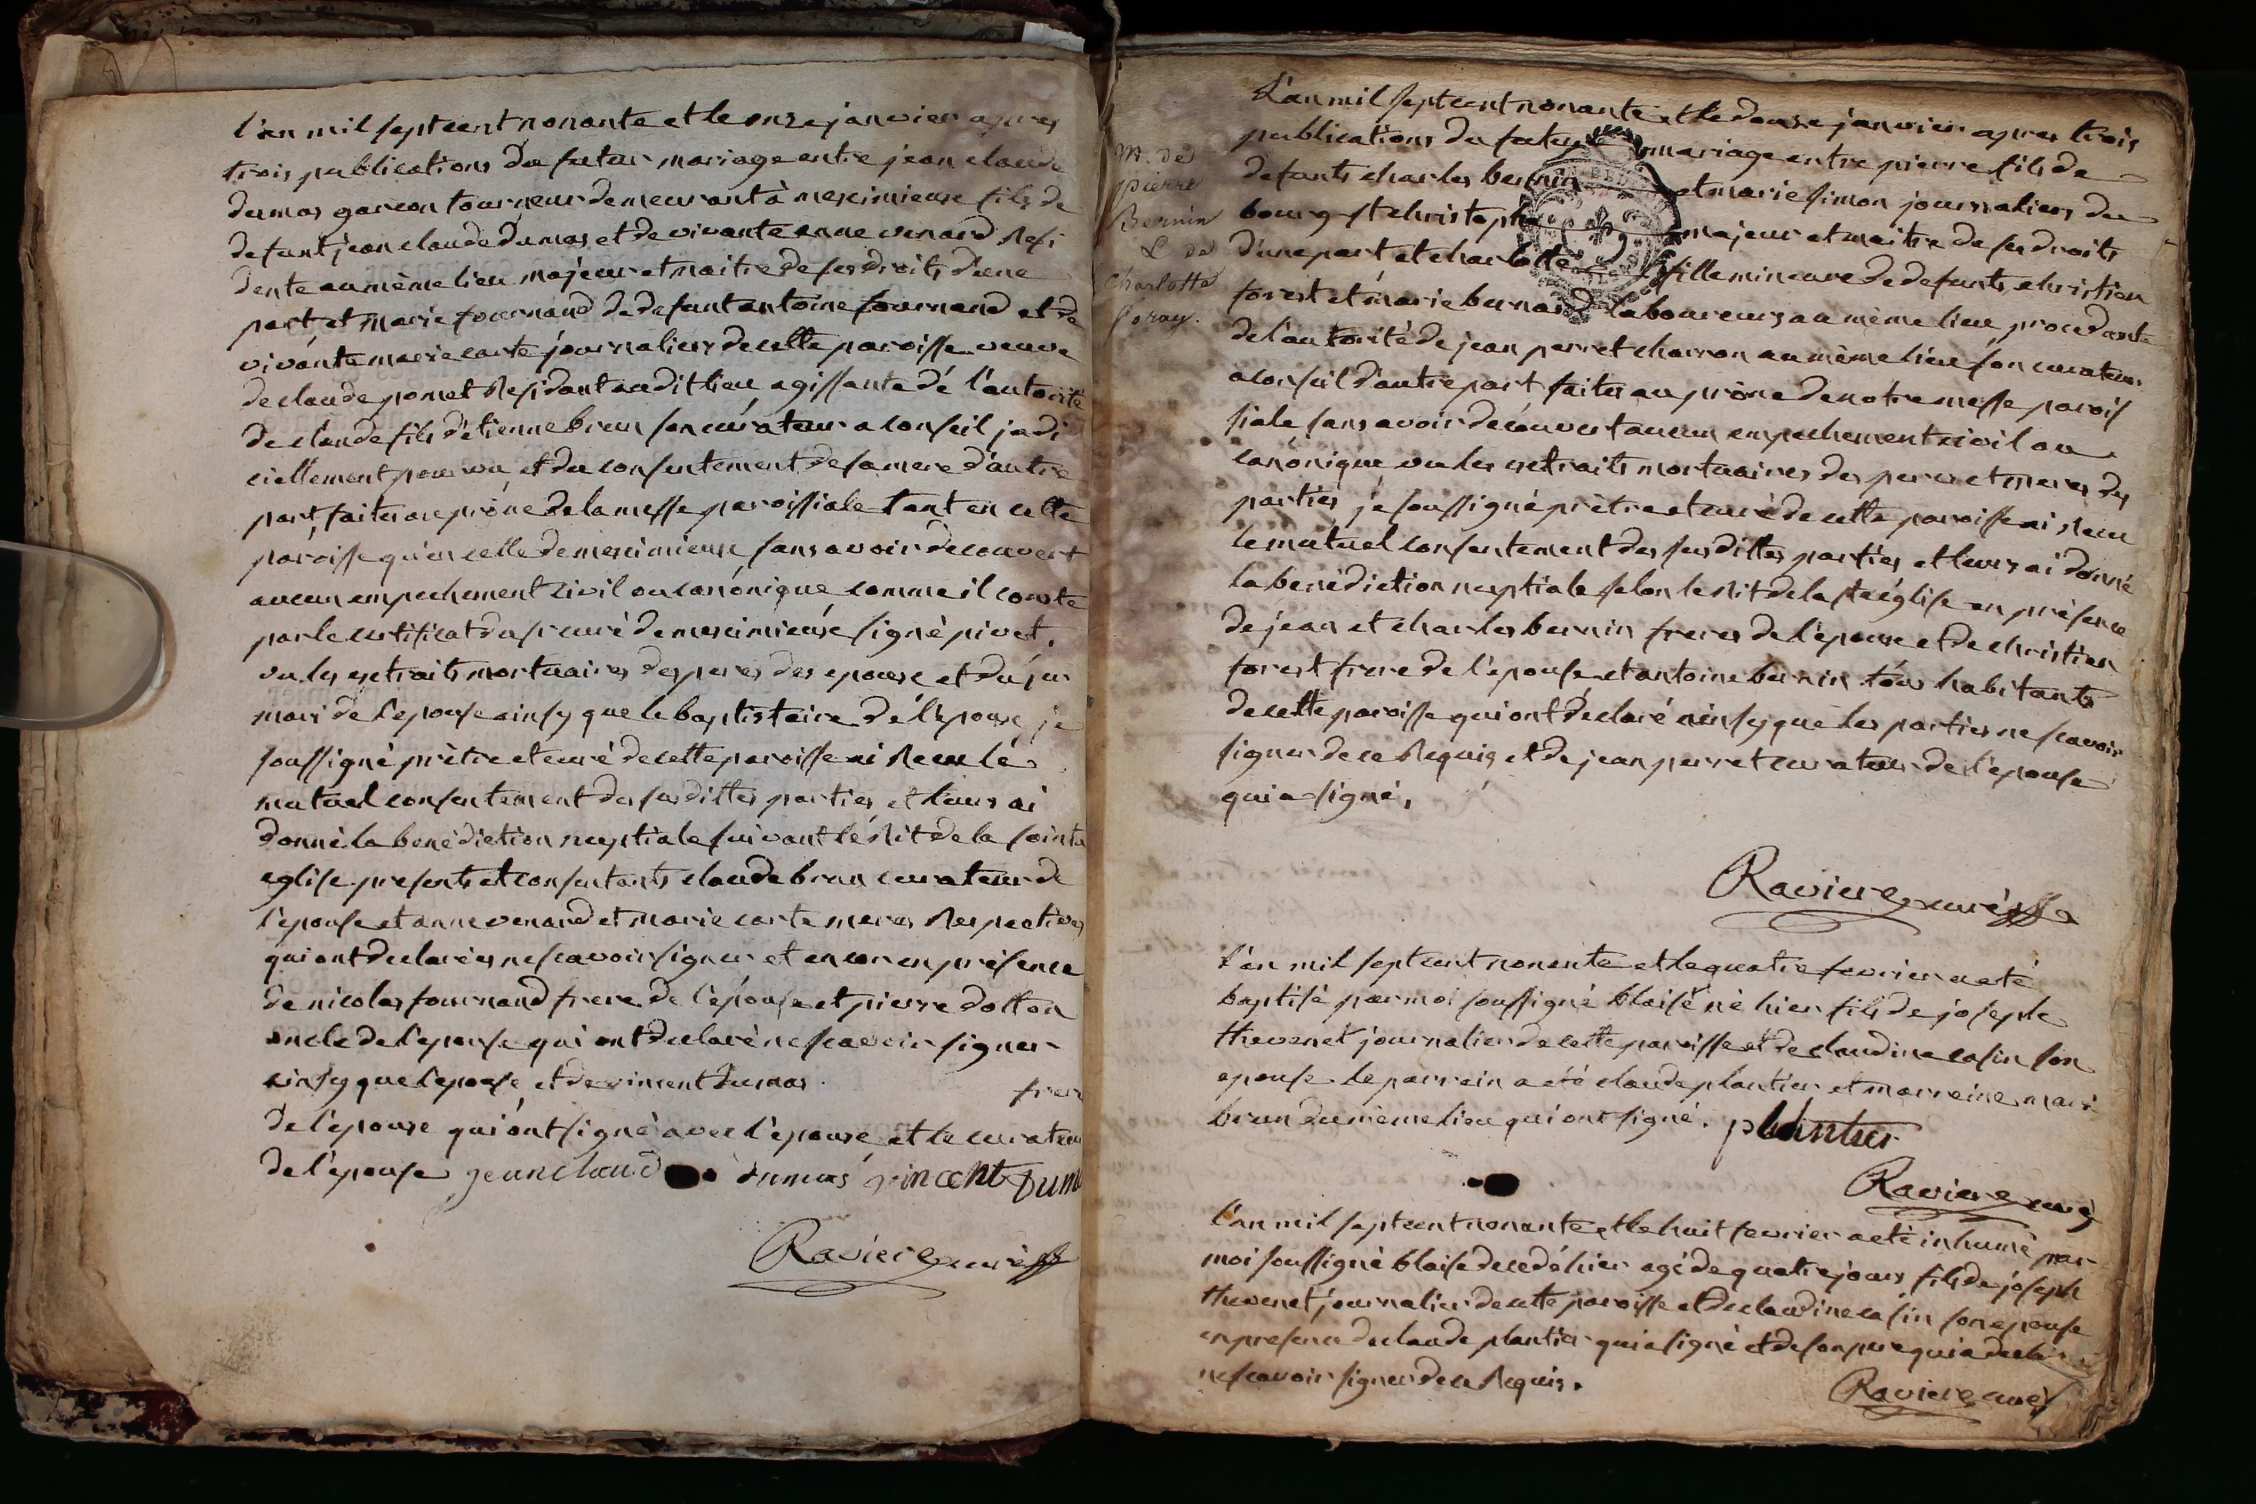 l'an mil septcent nonante et le onze janvier apres
trois publications du futur mariage entre jean claude
dumas garcon tourneur demeurant à meximieux fils de
defunt jean claude dumas et de vivante anne venard resi
dente au même lieu majeur et maitre de ses droits d'une
part, et marie fournand de defunt antoine fournand et de
vivante marie carte journaliers de cette paroisse veuve
de claude pomet residant audit lieu, agissante dé l'autorité
de claude fils d'etienne brun son curateur a conseil judi
ciellement pourvu, et du consentement de sa mere d'autre
part, faites au prône de la messe paroissiale tant en cette
paroisse qu'en celle de meximieux, sans avoir decouvert
aucun empechement civil ou canónique comme il conste
par le certificat du sr curé de meximieux signé pivet.
vu les extraits mortuaires des peres des epoux et du 
mari de l'epouse ainsy que le baptistaire dé l'epoux, je
soussigné prêtre et curé de cette paroisse ai recu le
mutuel consentement des susdittes parties, et leurs ai
donné la benédiction nuptiale suivant lé rit de la sainte
eglise presents et consentants claude brun curateur de
l'epouse et anne venard et marie carte meres respectives
qui ont declarées ne scavoir signer et encor en présence
de nicolas fournand frere de l'épouse et pierre dotton
oncle de l'epouse qui ont declaré ne scavoir signer
ainsy que l'epouse, et de vincent dumas frere
de l'epoux qui ont signé avec l'epoux, et le curateur
de l'epouse jean claud dumas vincent Dum
Raviere curé
M. de
pierre
Bernin
& de
Charlotte
foray.
L'an mil septcent nonante et le douze janvier apres trois
publications du futur mariage entre pierre fils de
defunts charles bernin et marie simon journaliers du
bourg st christophe majeur et maitre de ses droits
d'une part et charlotte fille mineure de defunts christien
forest et marie bernard laboureurs au même lieu procedante
de l'autorité de jean perret charron au même lieu son curateur
a conseil d'autre part faites au prône de notre messe parois
siale sans avoir découvert aucun empechement civil ou
canónique, vu les extraits mortuaires des peres et meres des
parties je soussigné prêtre et curé de cette paroisse ai recu
le mutuel consentement des susdittes parties et leurs ai donné
la benédiction nuptiale selon le rit de la ste église en présence
de jean et charles bernin freres de l'epoux et de christien
forest frere de l'epouse et antoine bernin tous habitants
de cette paroisse qui ont declaré ainsy que les parties ne scavoir
signer de ce requis et de jean perret curateur de l'epouse
qui a signé.
Raviere curé
l'an mil septcent nonante et le quatre fevrier a eté
baptisé par moi soussigné blaise né hier fils de joseph
thevenet journalier de cette paroisse et de claudine casin son
epouse le parrein a été claude plantier et marreine mari
brun du même lieu qui ont signé. plantier
Raviere curé
l'an mil septcent nonante et le huit fevrier a eté inhumé par
moi soussigné blaise decedé hier agé de quatre jours fils de joseph
thevenet journalier de cette paroisse et de claudine casin son epouse
en presence de claude plantier qui a signé et de son pere qui a declaré
ne scavoir signer de ce requis.
Raviere curé